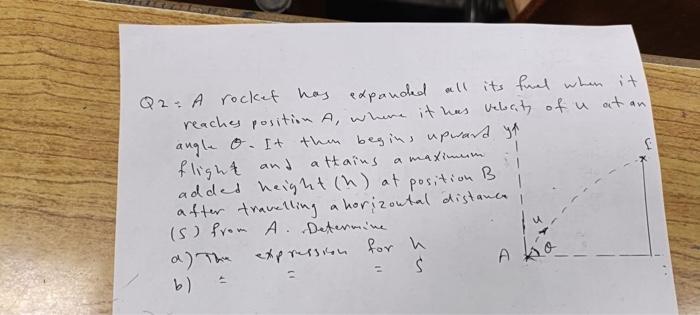 Q2: A rocket has expanded all its fuel when it
reaches position A, where it has velocity of u at an
angle θ. It then begins upward
flight and attains a maximum
added height (h) at position B
after travelling a horizontal distance
(S) from A. Determine
a) The expression for h
b) = = = S
y
u
A θ